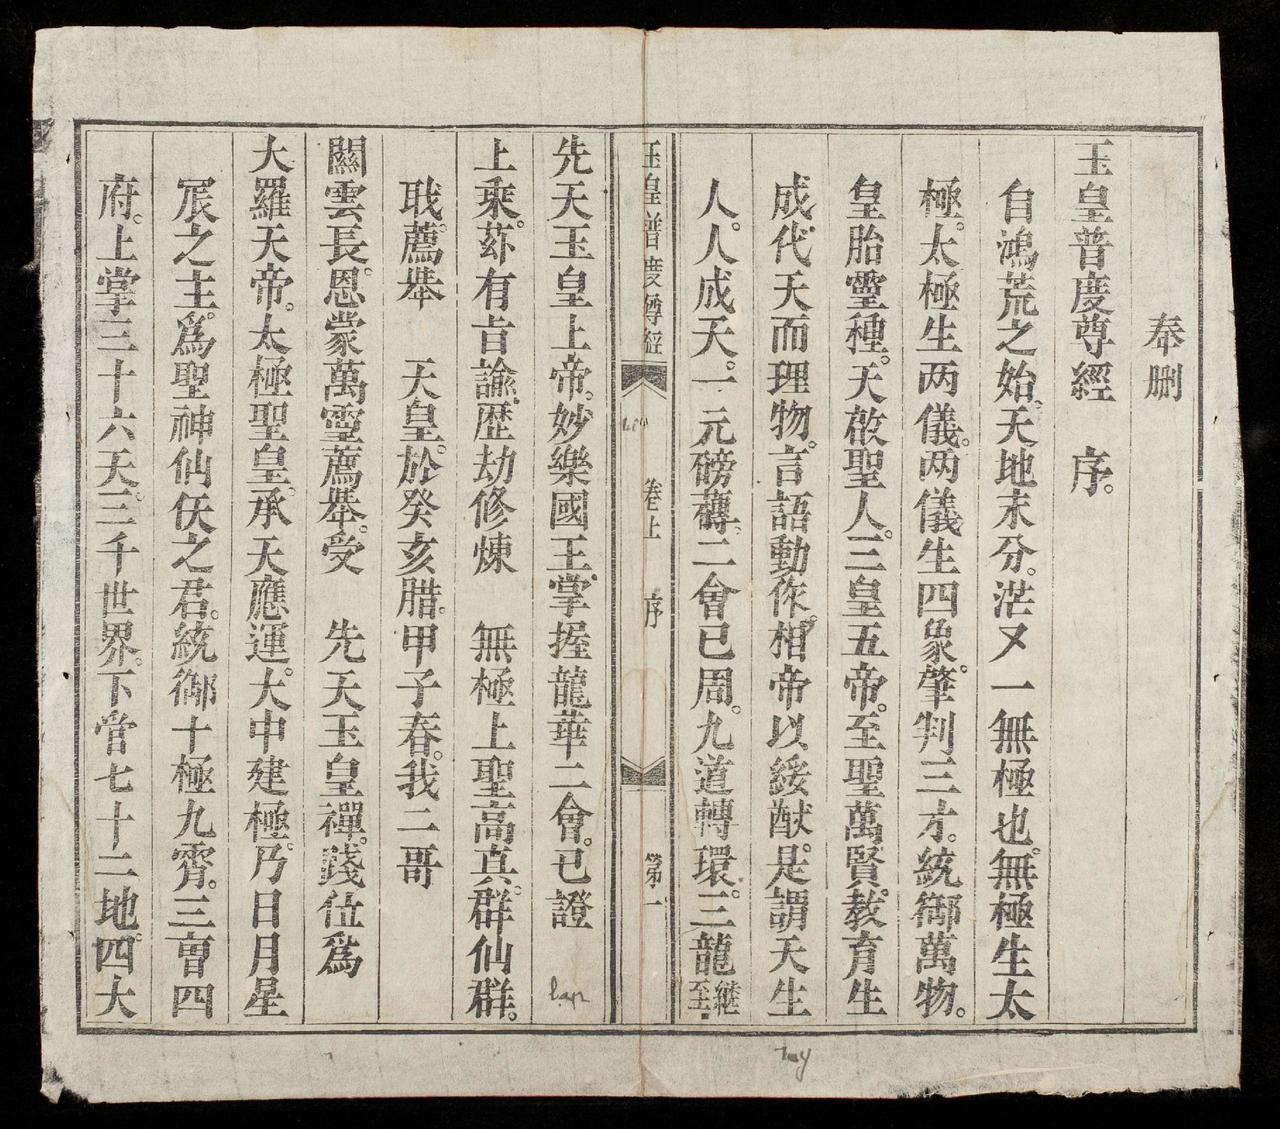 奉刪
玉皇普度尊經　序。
自鴻荒之始。天地未分。茫乂一無極也。無極生太
極。太極生两儀。两儀生四象。肇判三才。統御萬物。
皇胎靈種。天啟聖人。三皇五帝。至聖萬賢。教育生
成。代天而理物。言語動作。相帝以綏猷。是謂天生
人。人成天。一元磅礴。二會已周。九道轉環。三龍繼至。
玉皇普度尊經　卷上　序　第一
先天玉皇上帝。妙樂國王。掌握龍華二會。已證
上乘。茲有旨諭。歷劫修煉　無極上聖高真。群仙群。
職。薦舉　天皇。於癸亥腊。甲子春。我二哥
關雲長。恩蒙萬靈薦舉。受　先天玉皇禪。踐位為
大羅天帝。太極聖皇。承天應運。大中建極。乃日月星
辰之主。為聖神仙仸之君。統御十極九霄。三曹四
府。上掌三十六天。三千世界。下管七十二地。四大